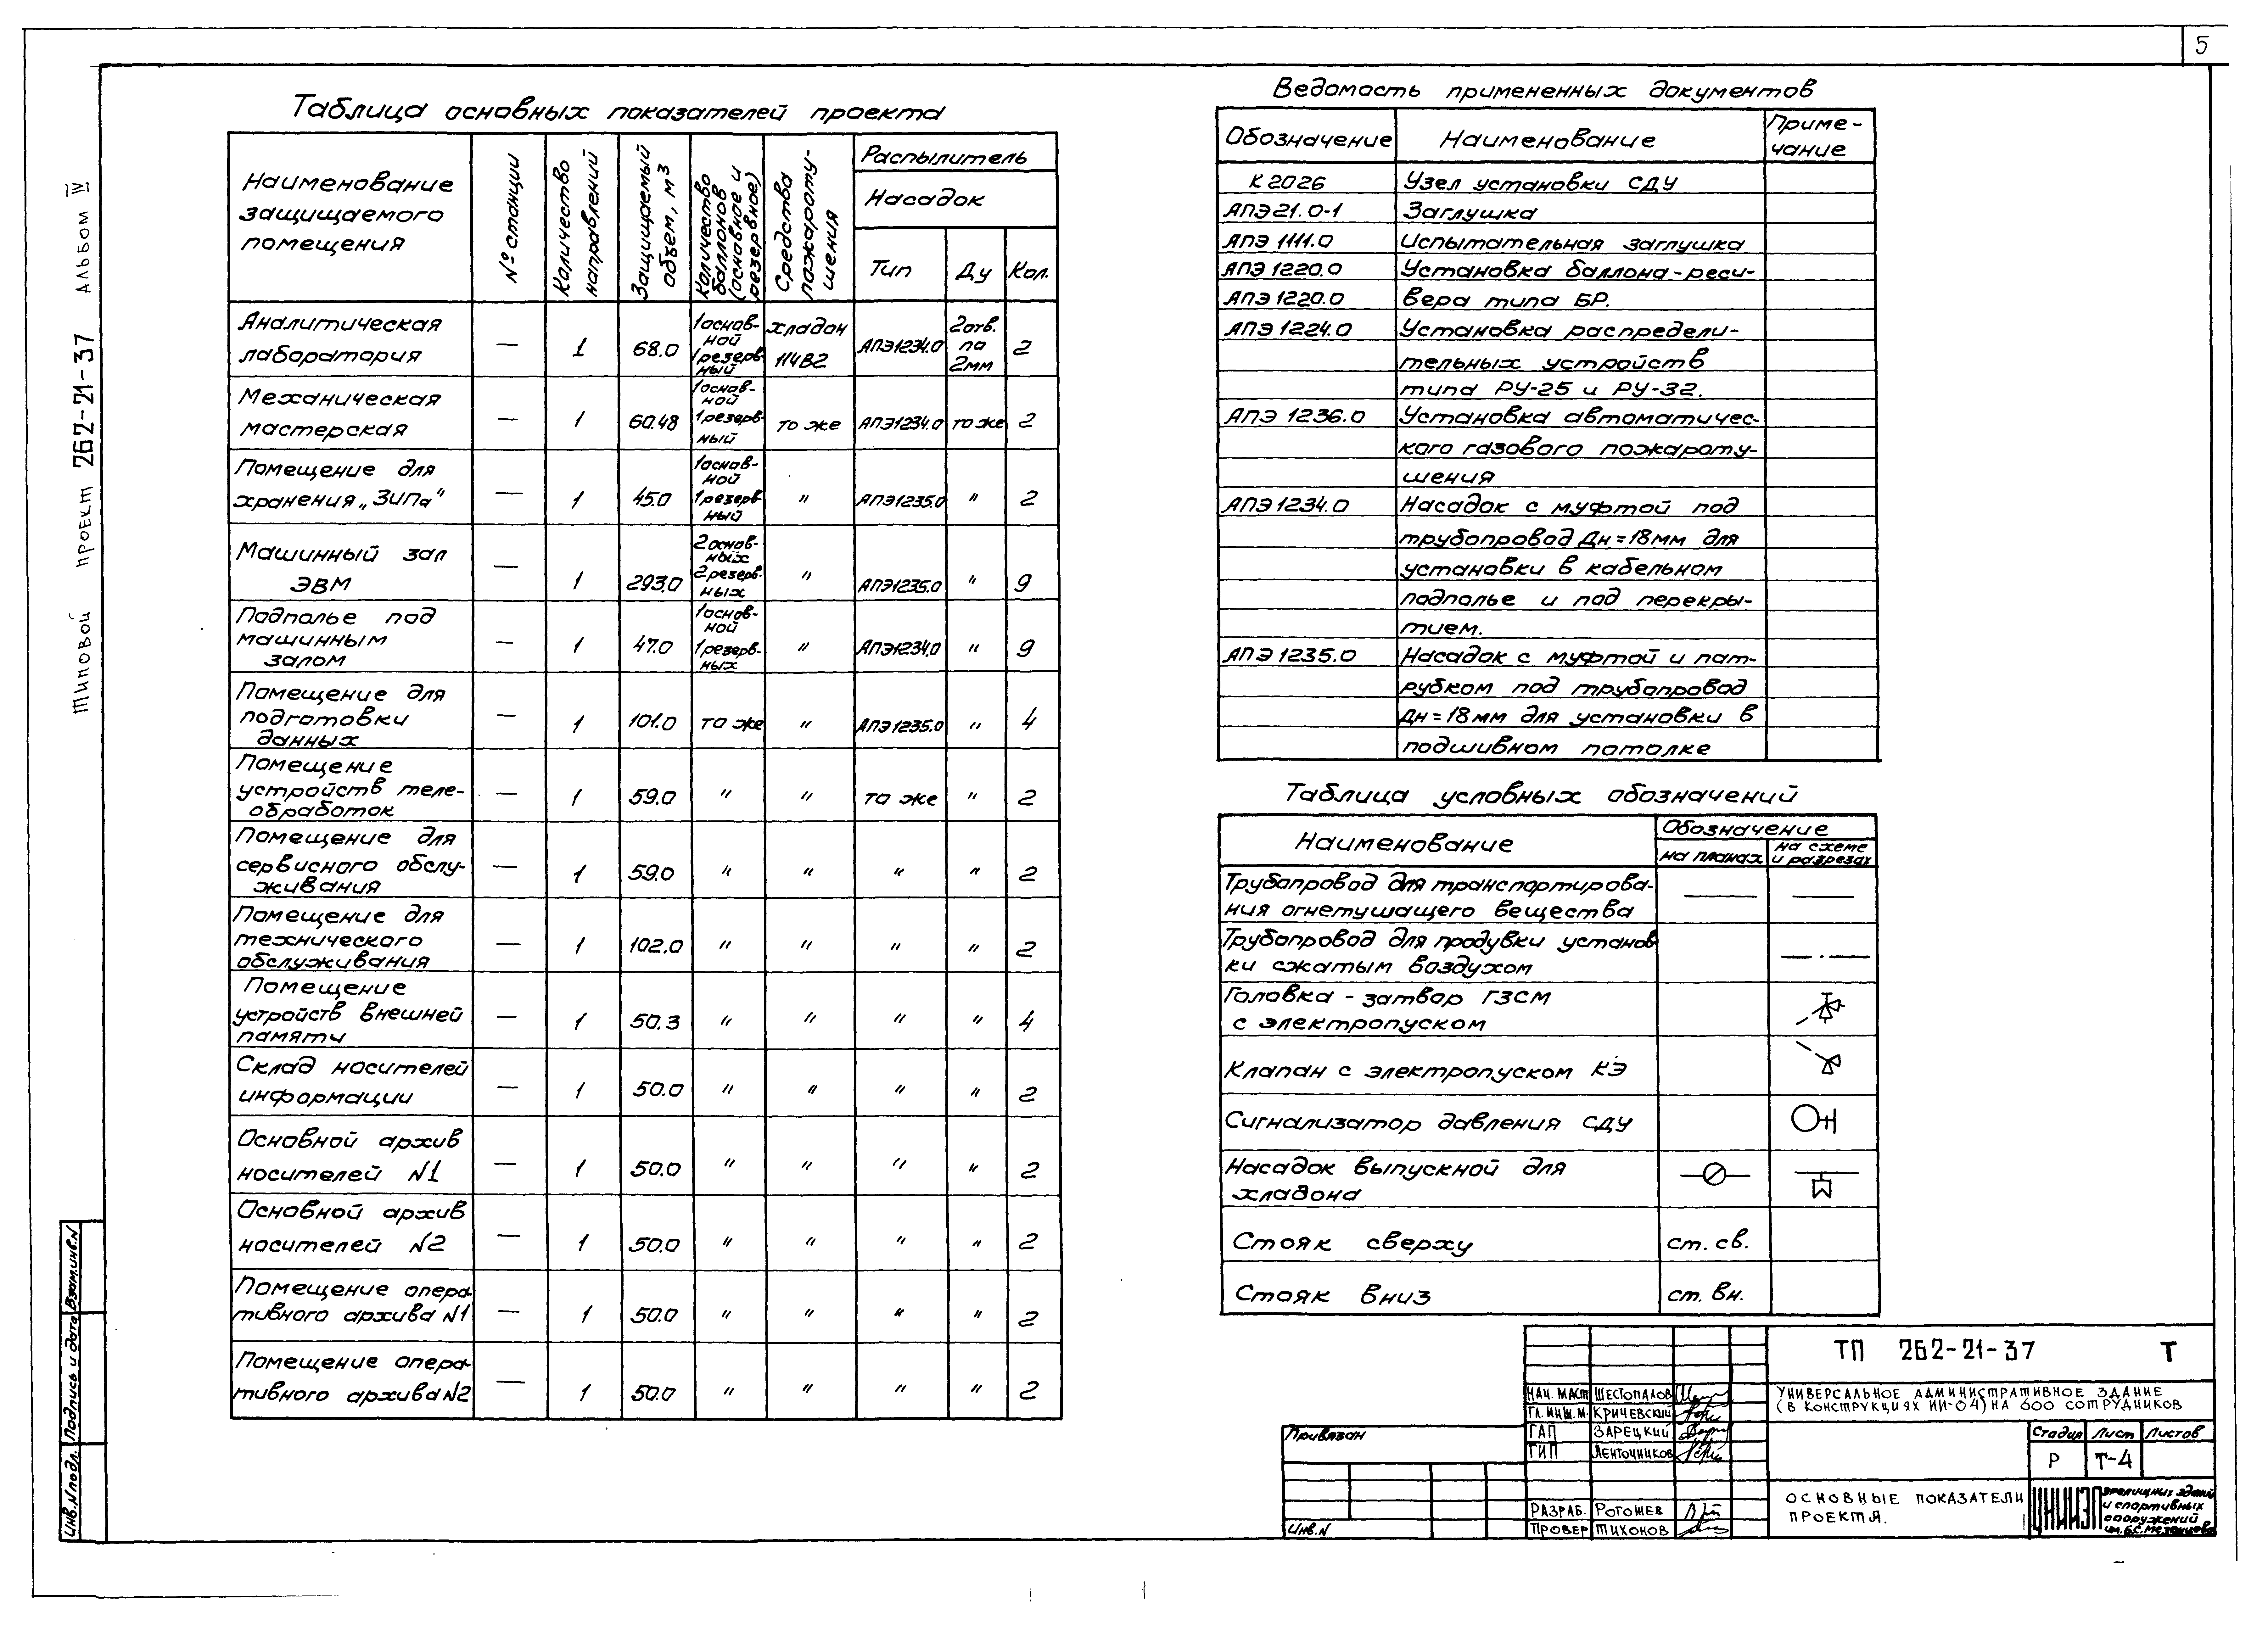 5
Типовой проект 262-21-37 Альбом IV
Таблица основных показателей проекта
Наименование защищаемого помещения
№ станции
Количество направлений
Защищаемый объем, м3
Количество баллонов (основное и резервное)
Средства пожаротушения
Распылитель
Насадок
Тип Ду Кол.
Аналитическая лаборатория — 1 68.0 1 основной 1 резервный хладон 114В2 АПЭ1234.0 2 отв. по 2мм 2
Механическая мастерская — 1 60.48 1 основной 1 резервный то же АПЭ1234.0 то же 2
Помещение для хранения „ЗИПа" — 1 45.0 1 основной 1 резервный " АПЭ1235.0 " 2
Машинный зал ЭВМ — 1 293.0 2 основных 2 резервных " АПЭ1235.0 " 9
Подполье под машинным залом — 1 47.0 1 основной 1 резервных " АПЭ1234.0 " 9
Помещение для подготовки данных — 1 101.0 то же " АПЭ1235.0 " 4
Помещение устройств телеобработок — 1 59.0 " " то же " 2
Помещение для сервисного обслуживания — 1 59.0 " " " " 2
Помещение для технического обслуживания — 1 102.0 " " " " 2
Помещение устройств внешней памяти — 1 50.3 " " " " 4
Склад носителей информации — 1 50.0 " " " " 2
Основной архив носителей N1 — 1 50.0 " " " " 2
Основной архив носителей N2 — 1 50.0 " " " " 2
Помещение оперативного архива N1 — 1 50.0 " " " " 2
Помещение оперативного архива N2 — 1 50.0 " " " " 2
Ведомость примененных документов
Обозначение Наименование Примечание
К 2026 Узел установки СДУ
АПЭ21.0-1 Заглушка
АПЭ 1111.0 Испытательная заглушка
АПЭ 1220.0 Установка баллона-реси-
АПЭ 1220.0 вера типа БР.
АПЭ 1224.0 Установка распредели-
тельных устройств
типа РУ-25 и РУ-32.
АПЭ 1236.0 Установка автоматичес-
кого газового пожароту-
шения
АПЭ 1234.0 Насадок с муфтой под
трубопровод Дн=18мм для
установки в кабельном
подполье и под перекры-
тием.
АПЭ 1235.0 Насадок с муфтой и пат-
рубком под трубопровод
Дн=18мм для установки в
подшивном потолке
Таблица условных обозначений
Наименование Обозначение
на планах на схеме и разрезах
Трубопровод для транспортирова-
ния огнетушащего вещества
Трубопровод для продувки установ
ки сжатым воздухом
Головка-затвор ГЗСМ
с электропуском
Клапан с электропуском КЭ
Сигнализатор давления СДУ
Насадок выпускной для
хладона
Стояк сверху ст. св.
Стояк вниз ст. вн.
ТП 262-21-37 Т
Универсальное административное здание
(в конструкциях ИИ-04) на 600 сотрудников
Нач. маст Шестопалов
Гл. инж. М. Кричевский
ГАП Зарецкий
ГИП Ленточников
Разраб. Рогожев
Провер Тихонов
Привязан
Инв. N
Стадия Лист Листов
Р Т-4
Основные показатели
проекта.
ЦНИИЭП зрелищных зданий
и спортивных
сооружений
им. Б.С. Мезенцева
Инв. N подл. Подпись и дата Взам. инв. N